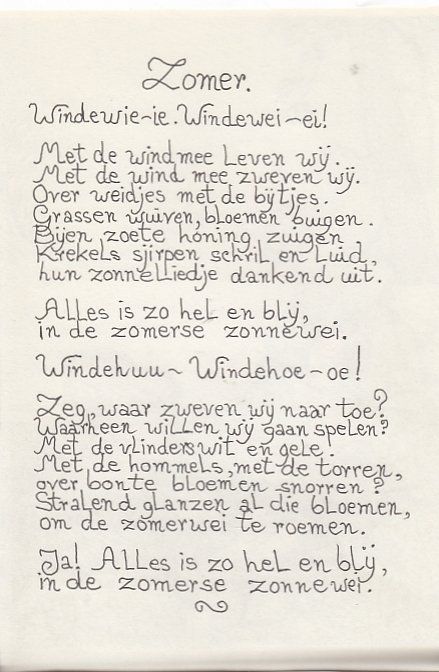 Zomer.
Windewie-ie. Windewei-ei!
Met de wind mee Leven wij.
Met de wind mee zweven wij.
Over weidjes met de bijtjes.
Grassen wuiven, bloemen buigen.
Bijen zoete honing zuigen.
Krekels sjirpen schril en Luid,
hun zonneliedje dankend uit.
Alles is zo hel en blij,
in de zomerse zonnewei.
Windehuu~ Windehoe-oe!
Zeg, waar zweven wij naar toe?
Waarheen willen wij gaan spelen?
Met de vlinders wit en gele.
Met de hommels, met de torren,
over bonte bloemen snorren?
Stralend glanzen al die bloemen,
om de zomerwei te roemen.
Ja! Alles is zo hel en blij,
in de zomerse zonnewei.